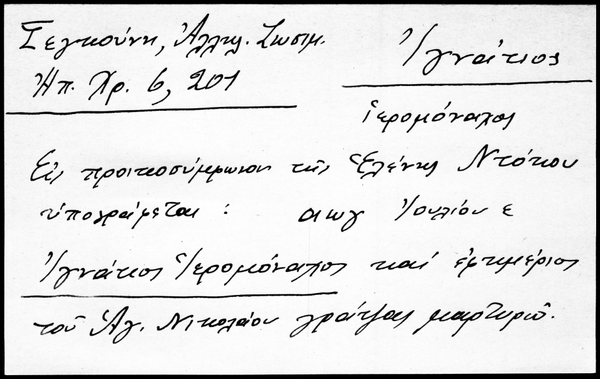 Γεγκούνη, Ἀλληλ. Ζωσιμ.
Ἠπ. Χρ. 6, 201
Ἰγνάτιος
ἱερομόναχος
Εἰς προικοσύμφωνον τῆς Ἑλένης Ντόκου
ὑπογράφεται : αωγ Ἰουλίου ε
Ἰγνάτιος Ἱερομόναχος καί ἐφημέριος
τοῦ Ἁγ. Νικολάου γράψας μαρτυρῶ.